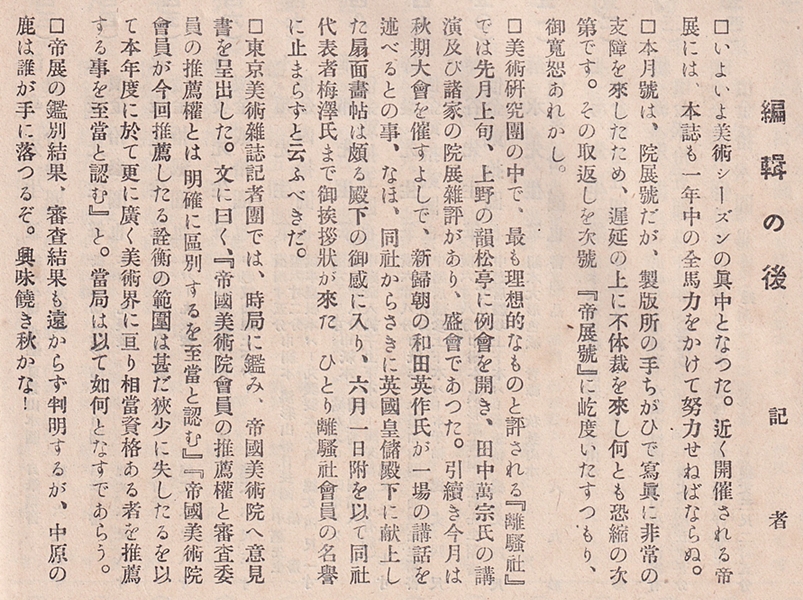 編輯の後
記者
□いよいよ美術シーズンの眞中となつた。近く開催される帝
展には、本誌も一年中の全馬力をかけて努力せねばならぬ。
□本月號は、院展號だが、製版所の手ちがひで寫眞に非常の
支障を來したため、遲延の上に不体裁を來し何とも恐縮の次
第です。その取返しを次號『帝展號』に屹度いたすつもり、
御寬恕あれかし。
□美術硏究團の中で、最も理想的なものと評される『離騷社』
では先月上旬、上野の韻松亭に例會を開き、田中萬宗氏の講
演及び諸家の院展雜評があり、盛會であつた。引續き今月は
秋期大會を催すよしで、新歸朝の和田英作氏が一場の講話を
述べるとの事、なほ、同社からさきに英國皇儲殿下に献上し
た扇面畫帖は頗る殿下の御感に入り、六月一日附を以て同社
代表者梅澤氏まで御挨拶狀が來た ひとり離騷社會員の名譽
に止まらずと云ふべきだ。
□東京美術雜誌記者團では、時局に鑑み、帝國美術院へ意見
書を呈出した。文に曰く、『帝國美術院會員の推薦權と審査委
員の推薦權とは明確に區別するを至當と認む』『帝國美術院
會員が今回推薦したる詮衡の範圍は甚だ狹少に失したるを以
て本年度に於て更に廣く美術界に亘り相當資格ある者を推薦
する事を至當と認む』と。當局は以て如何となすであらう。
□帝展の鑑別結果、審査結果も遠からず判明するが、中原の
鹿は誰が手に落つるぞ。興味饒き秋かな!